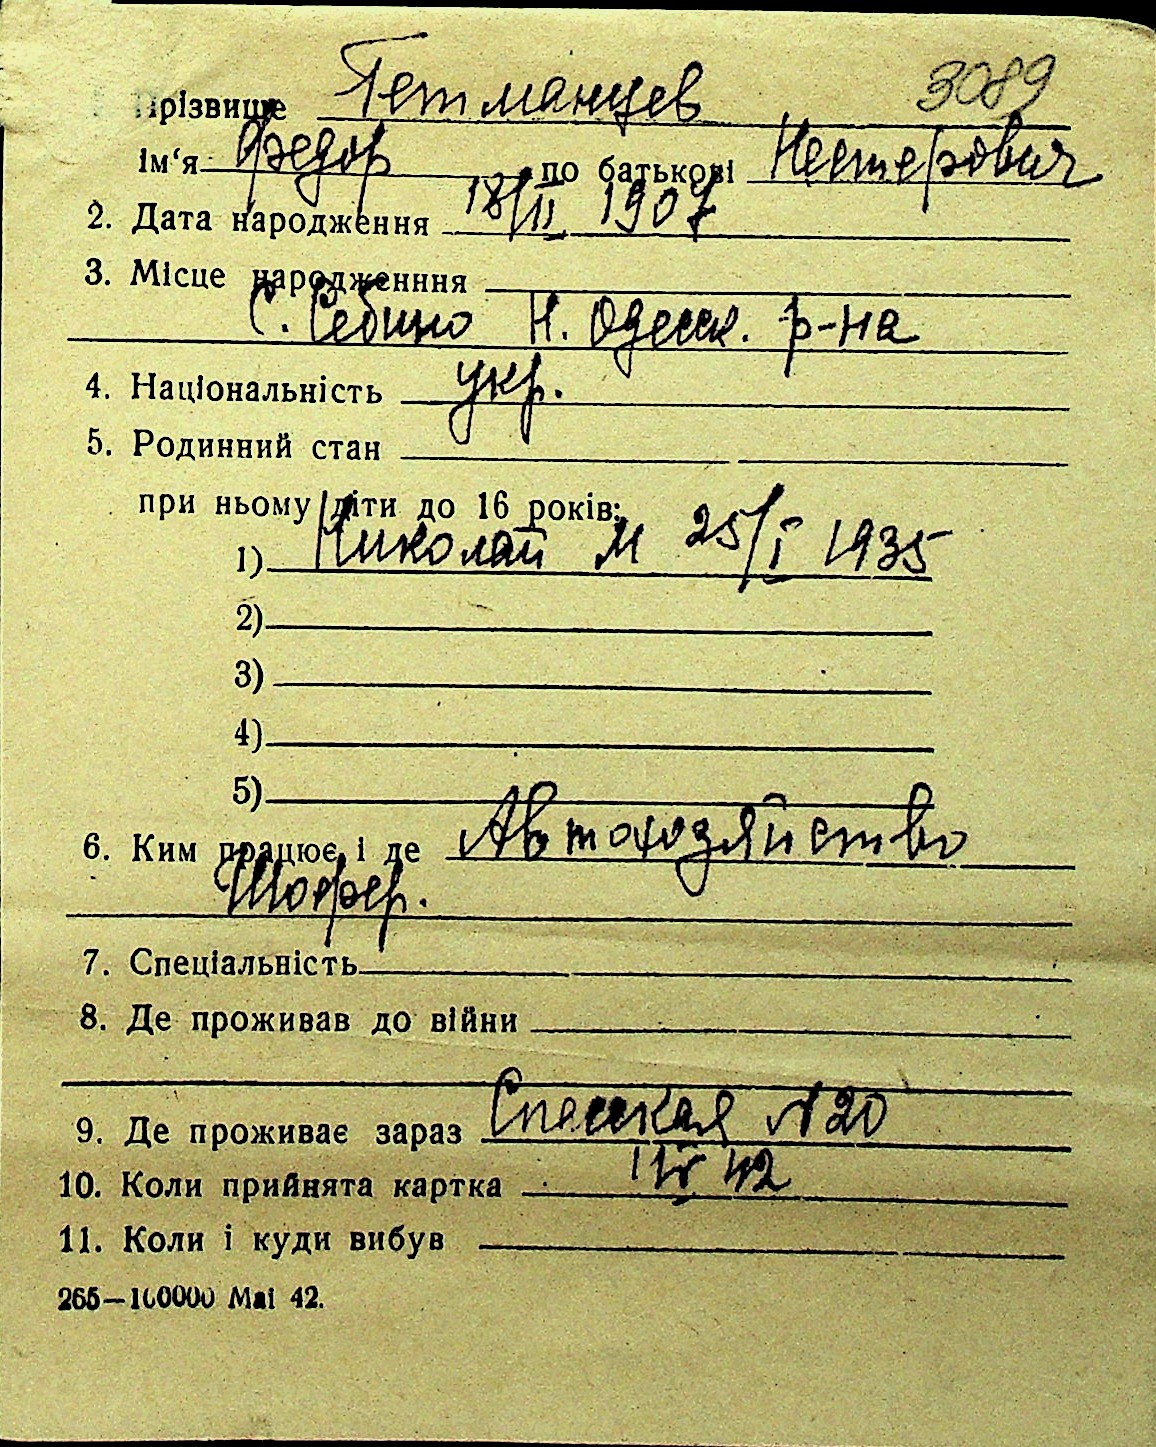 Прізвище Гетманцев 3089
Ім‘я Федор по батькові Нестерович
2. Дата народження 18/II 1907
3. Місце народженння
с. Себино Н. Одесск. р-на
4. Національність укр.
5. Родинний стан
при ньому діти до 16 років:
1) Николай М 25/I 1935
2)
3)
4)
5)
6. Ким працює і де Автохозяйство
Шофер.
7. Спеціальність
8. Де проживав до війни
9. Де проживає зараз Спасская № 20
10. Коли прийнята картка 42
11. Коли і куди вибув
265—100000 Маі 42.